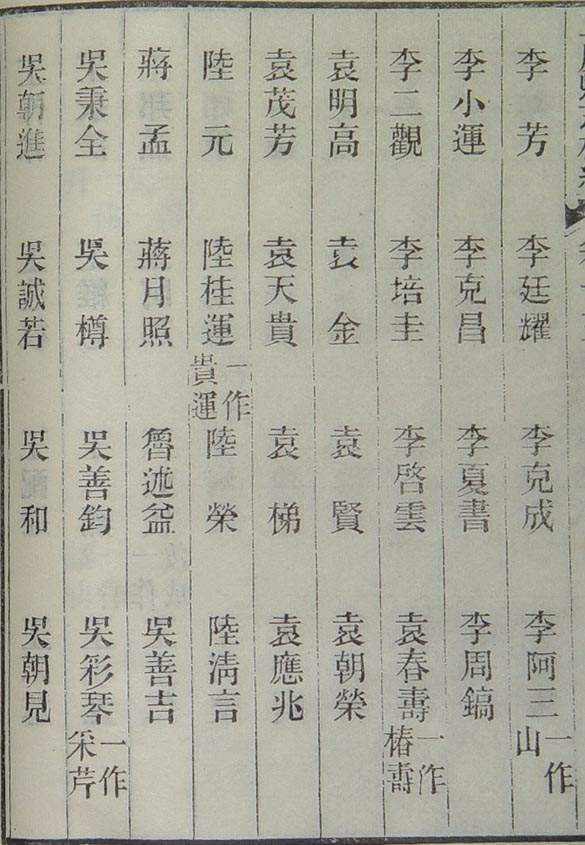 李芳 李廷耀 李克成 李阿三一作山
李小運 李克昌 李夏書 李周鎬
李二觀 李培圭 李啓雲 袁春壽一作椿壽
袁明高 袁金 袁賢 袁朝榮
袁茂芳 袁天貴 袁梯 袁應兆
陸元 陸桂運一作貴運 陸榮 陸淸言
蔣孟 蔣月照 魯迆益 吳善吉
吳秉全 吳樽 吳善鈞 吳彩琴一作采芹
吳朝進 吳誠若 吳配和 吳朝見